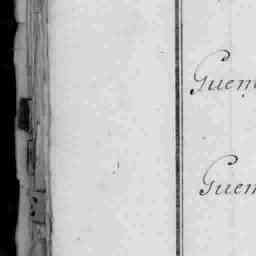 Guem
Guem